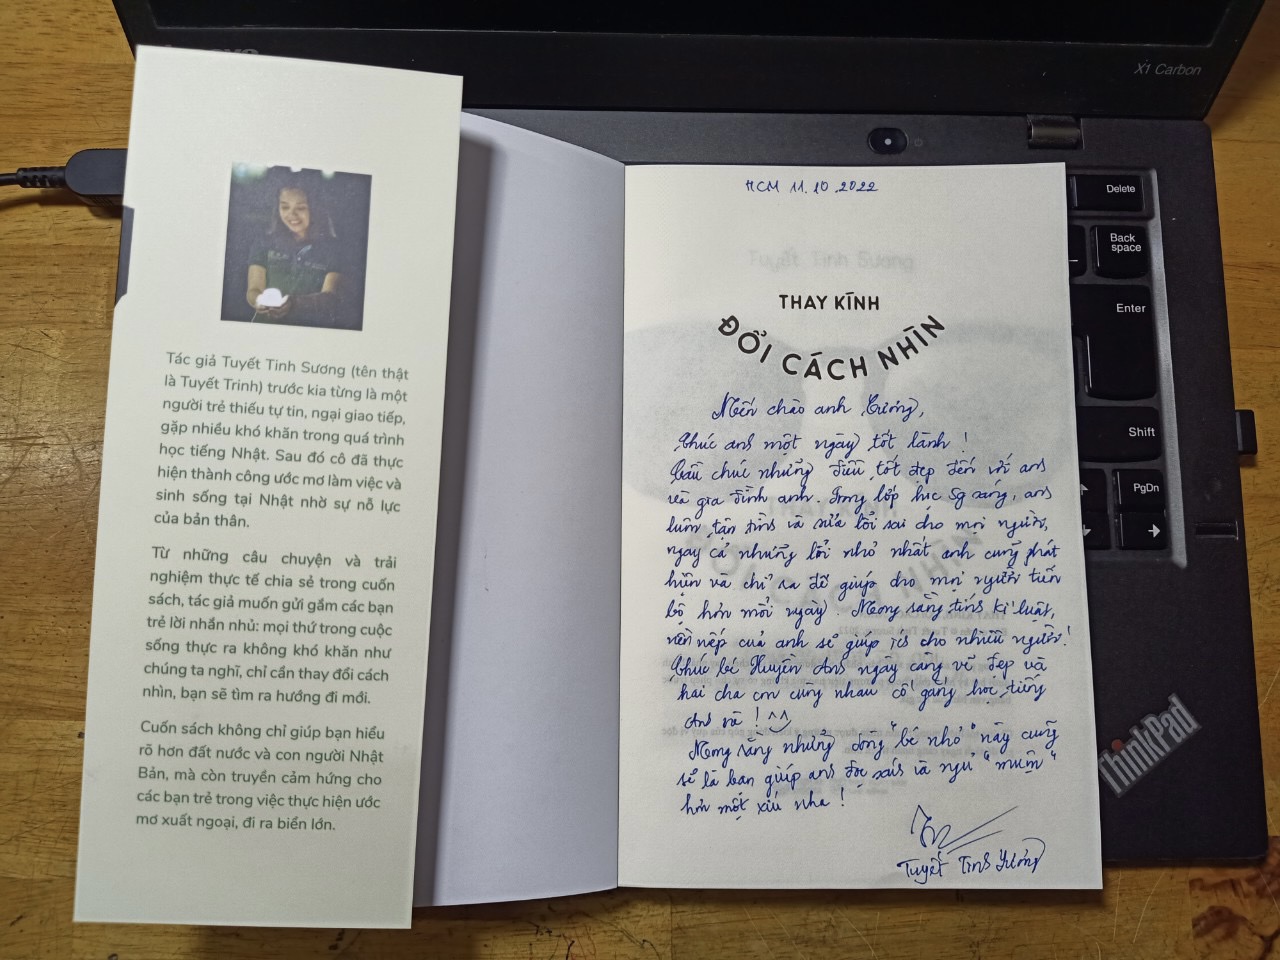 X1 Carbon
Delete
Back
space
Enter
Shift
PgDn
ThinkPad
Tác giả Tuyết Tinh Sương (tên thật
là Tuyết Trinh) trước kia từng là một
người trẻ thiếu tự tin, ngại giao tiếp,
gặp nhiều khó khăn trong quá trình
học tiếng Nhật. Sau đó cô đã thực
hiện thành công ước mơ làm việc và
sinh sống tại Nhật nhờ sự nỗ lực
của bản thân.
Từ những câu chuyện và trải
nghiệm thực tế chia sẻ trong cuốn
sách, tác giả muốn gửi gắm các bạn
trẻ lời nhắn nhủ: mọi thứ trong cuộc
sống thực ra không khó khăn như
chúng ta nghĩ, chỉ cần thay đổi cách
nhìn, bạn sẽ tìm ra hướng đi mới.
Cuốn sách không chỉ giúp bạn hiểu
rõ hơn đất nước và con người Nhật
Bản, mà còn truyền cảm hứng cho
các bạn trẻ trong việc thực hiện ước
mơ xuất ngoại, đi ra biển lớn.
HCM 11.10.2022
Tuyết Tinh Sương
THAY KÍNH
ĐỔI CÁCH NHÌN
Mến chào anh Cương,
Chúc anh một ngày tốt lành!
Cầu chúc những điều tốt đẹp đến với anh
và gia đình anh. Trong lớp lúc 5g sáng, anh
luôn tận tình và sửa lỗi sai cho mọi người,
ngay cả những lỗi nhỏ nhất anh cũng phát
hiện và chỉ ra để giúp cho mọi người tiến
bộ hơn mỗi ngày. Mong rằng tính kỉ luật,
nền nếp của anh sẽ giúp ích cho nhiều người!
Chúc bé Huyền Anh ngày càng xinh đẹp và
hai cha con cùng nhau cố gắng học tiếng
Anh nha! ^^
Mong rằng những dòng "bé nhỏ" này cũng
sẽ là bạn giúp anh đọc sách và ngủ "muộn"
hơn một xíu nha!
Tuyết Tinh Sương